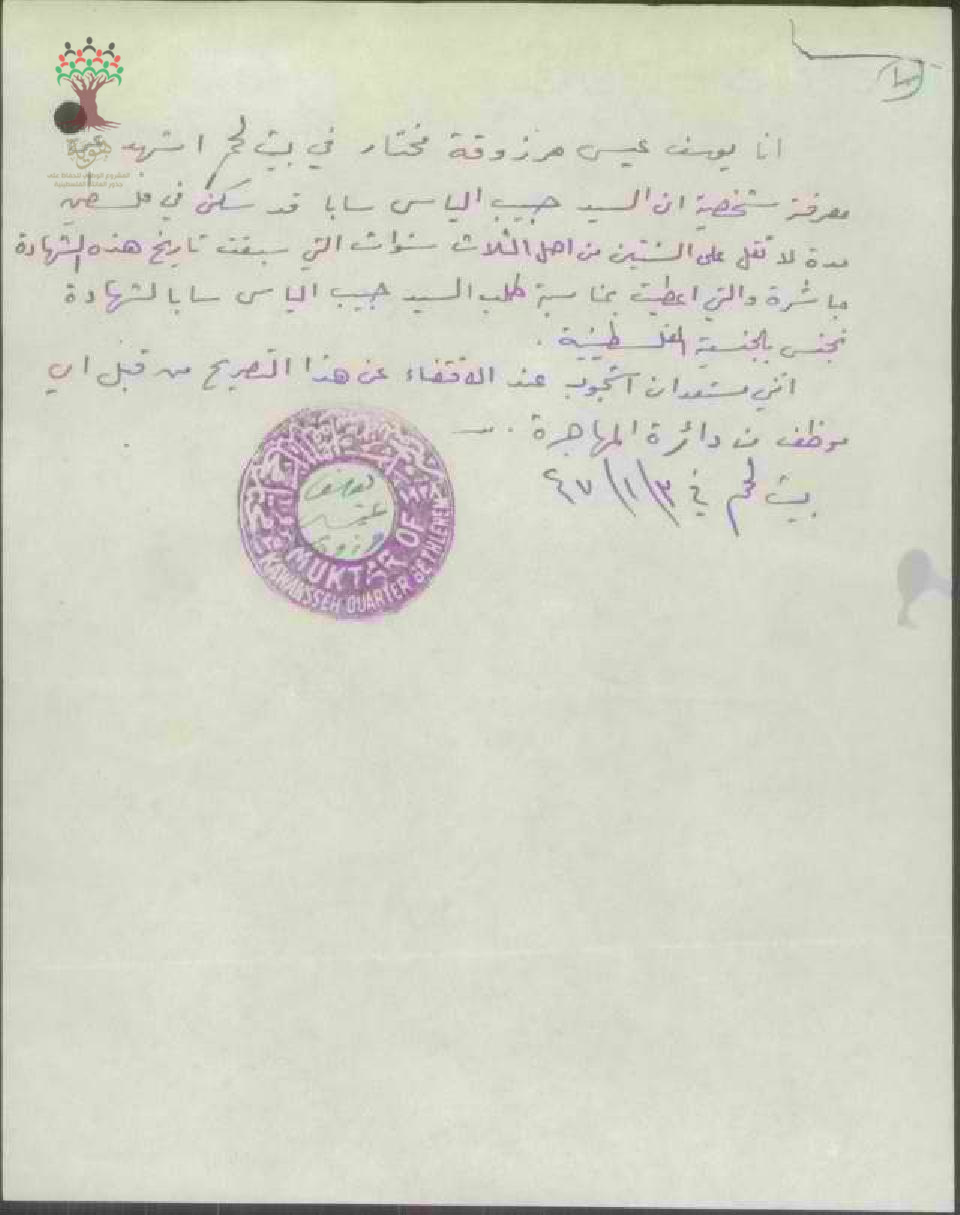 انا يوسف عيسى مرزوقة مختار في بيت لحم اشهد عن
معرفة شخصية ان السيد حبيب الياس سابا قد سكن في فلسطين
مدة لا تقل على السنتين من اصل الثلاث سنوات التي سبقت تاريخ هذه الشهادة
مباشرة والتي اعطيت بمناسبة طلب السيد حبيب الياس سابا لشهادة
تجنس بالجنسية الفلسطينية .
انني مستعد ان استجوب عند الاقتضاء عن هذا التصريح من قبل اي
موظف من دائرة المهاجرة .
بيت لحم في ٣/١/٤٧
يوسف
عيسى
مرزوقة
MUKTAR OF
KAWAWSSEH QUARTER BETHLEHEM
هوية
المشروع الوطني للحفاظ على
جذور العائلة الفلسطينية